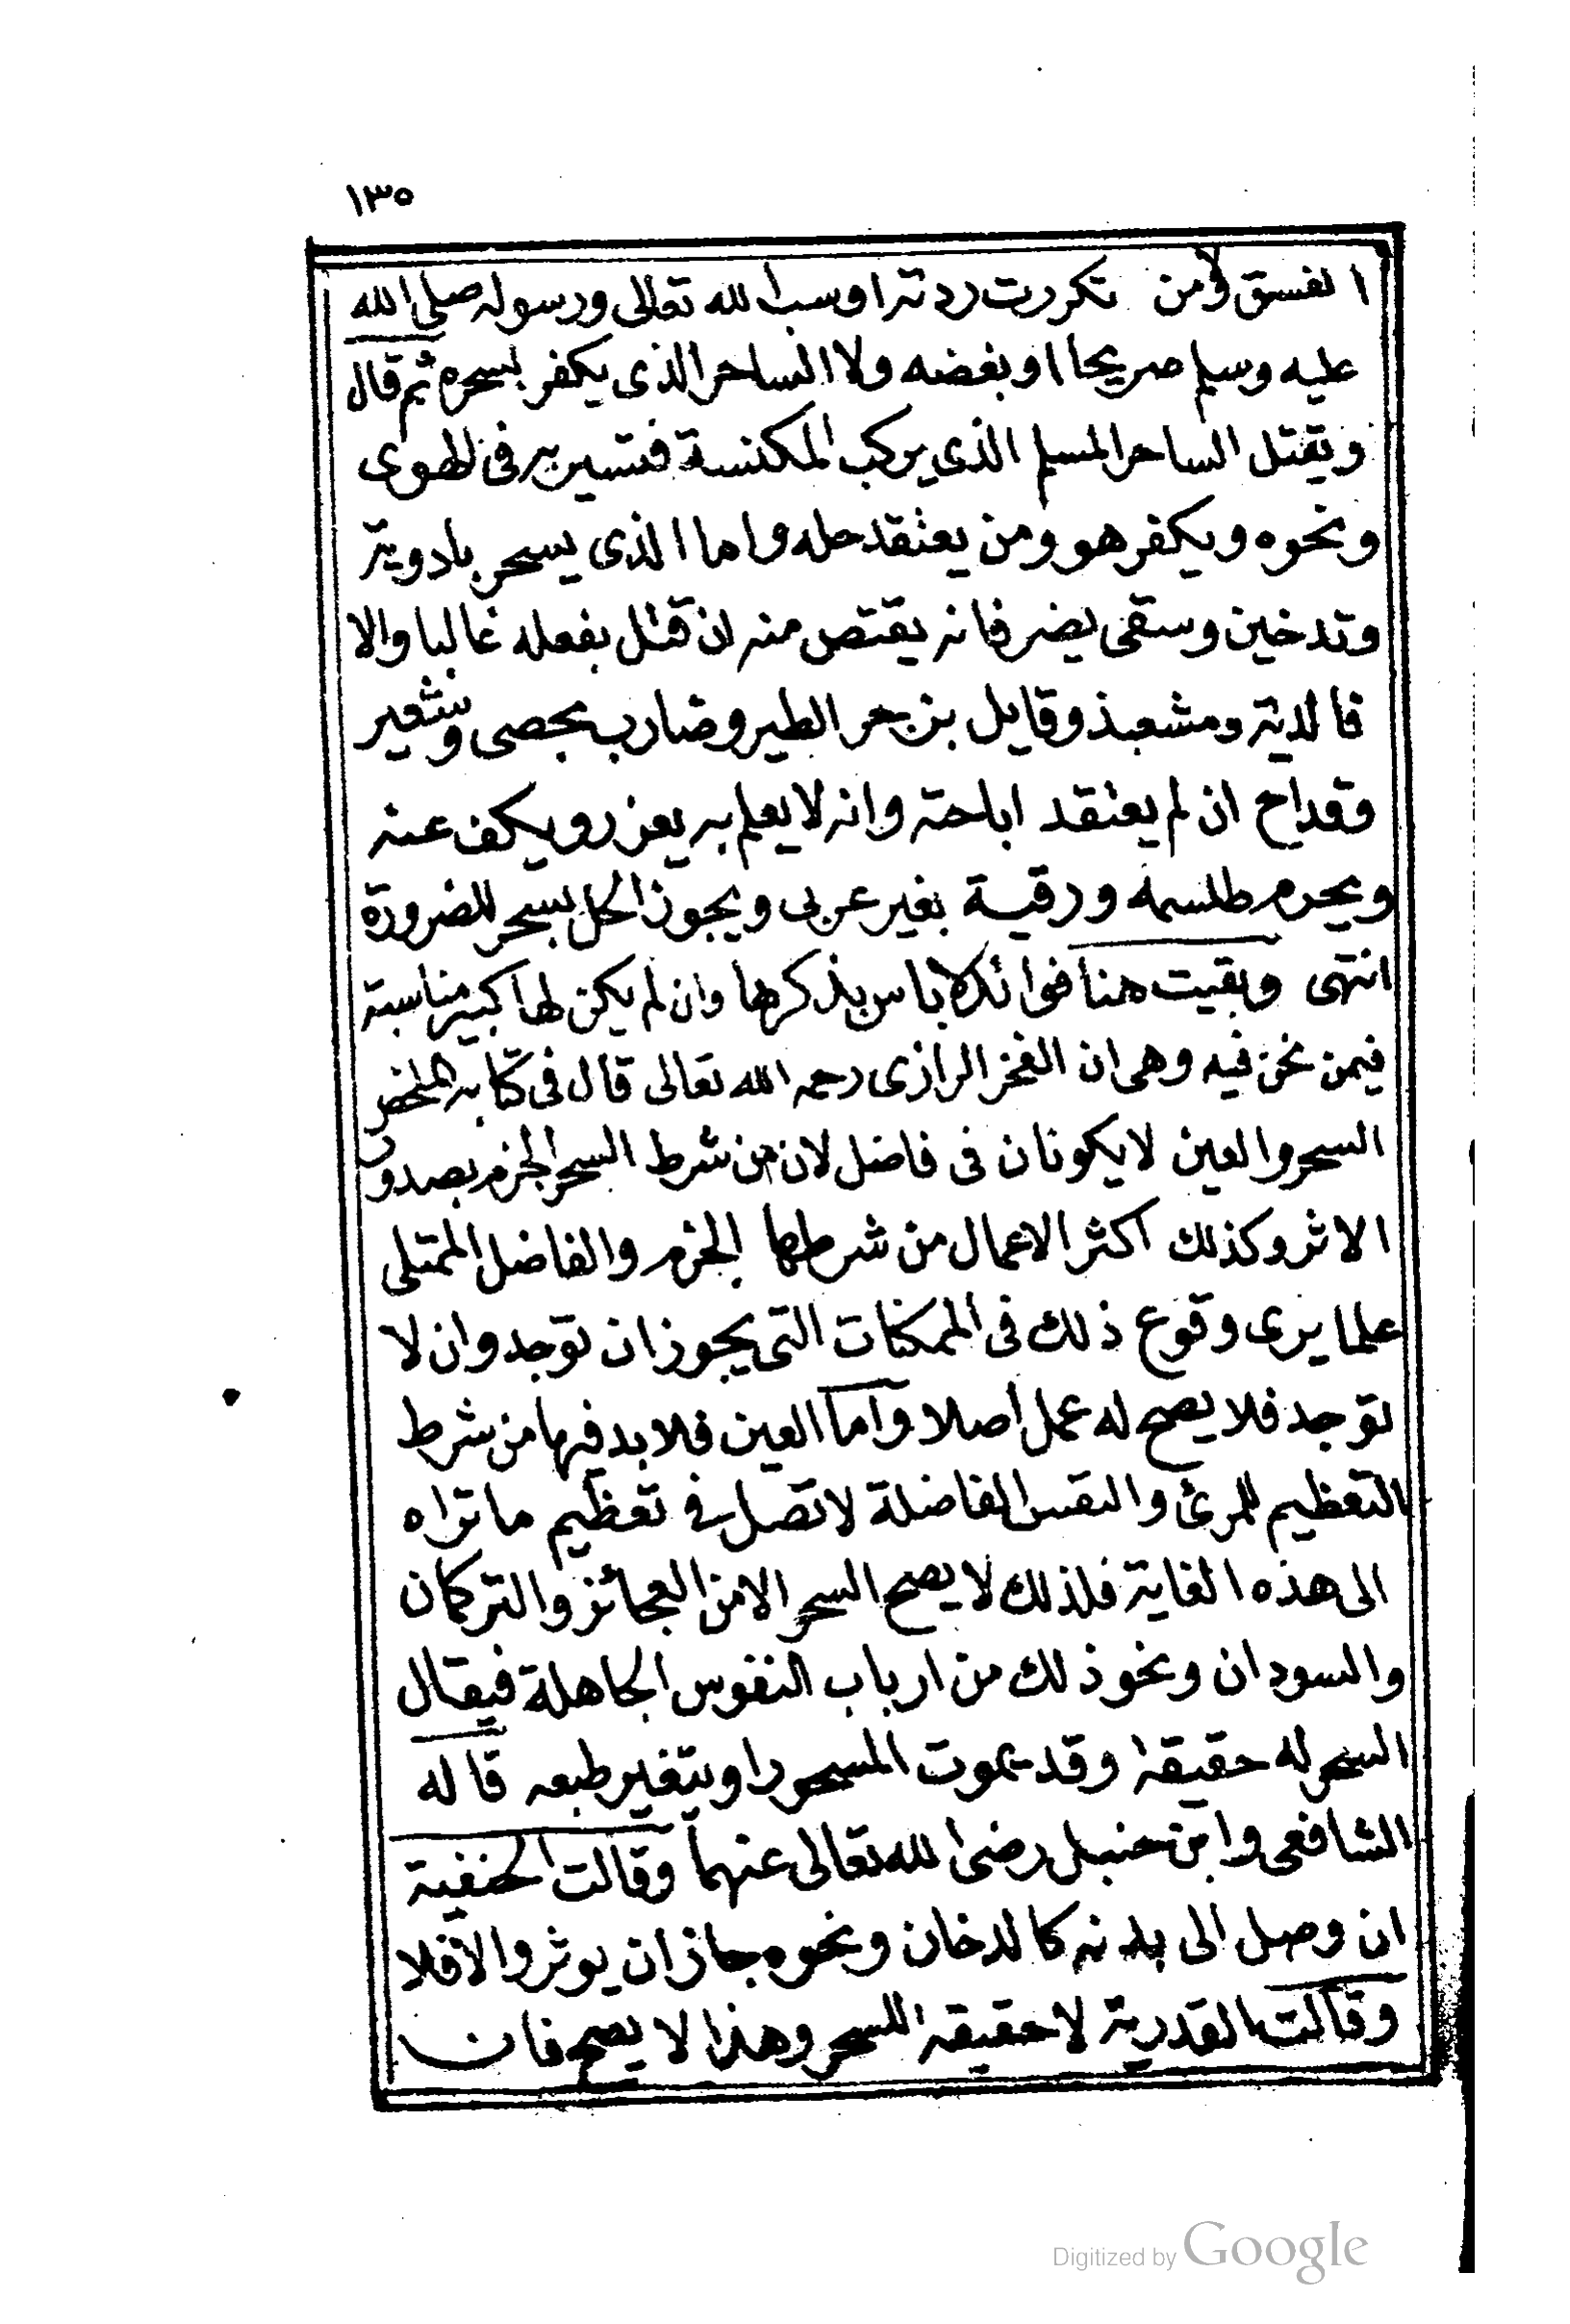 ١٣٥
الفسق ولا من تكررت ردته او سب الله تعالى ورسوله صلى الله
عليه وسلم صريحا او بغضه ولا الساحر الذى يكفر بسحره ثم قال
ويقتل الساحر المسلم الذى يركب المكنسة فتسير به فى الهوى
ونحوه ويكفر هو ومن يعتقد حله واما الذى يسحر بادوية
وتدخين وسقى يضر فانه يقتص منه ان قتل بفعله غالبا والا
فالدية ومشعبذ وقايل بزجر الطير وضارب بحصى وشعير
وقداح ان لم يعتقد اباحته وانه لا يعلم به يعزر ويكف عنه
ويحرم طلسمه ورقية بغير عربى ويجوز الحل بسحر للضرورة
انتهى وبقيت هنا فوائد لا باس بذكرها وان لم يكن لها كبير مناسبة
فيمن نحن فيه وهى ان الفخر الرازى رحمه الله تعالى قال فى كتابه الملخص
السحر والعين لا يكونان فى فاضل لان من شرط السحر الجزم بصدور
الاثر وكذلك اكثر الاعمال من شرطها الجزم والفاضل الممتلى
علما يرى وقوع ذلك فى الممكنات التى يجوز ان توجد وان لا
توجد فلا يصح له عمل اصلا واما العين فلا بد فيها من شرط
التعظيم للمرئ والنفس الفاضلة لا تصل فى تعظيم ما تراه
الى هذه الغاية فلذلك لا يصح السحر الا من العجائز والتركمان
والسودان ونحو ذلك من ارباب النفوس الجاهلة فيقال
السحر له حقيقة وقد يموت المسحور او يتغير طبعه قاله
الشافعى وابن حنبل رضى الله تعالى عنهما وقالت الحنفية
ان وصل الى بدنه كالدخان ونحوه جاز ان يوثر والا فلا
وقالت القدرية لا حقيقة للسحر وهذا لا يصح فان
Digitized by Google